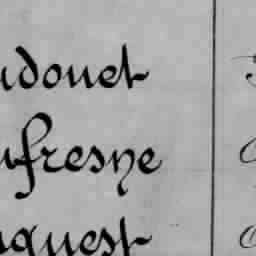 udouet
ufresne
uquest